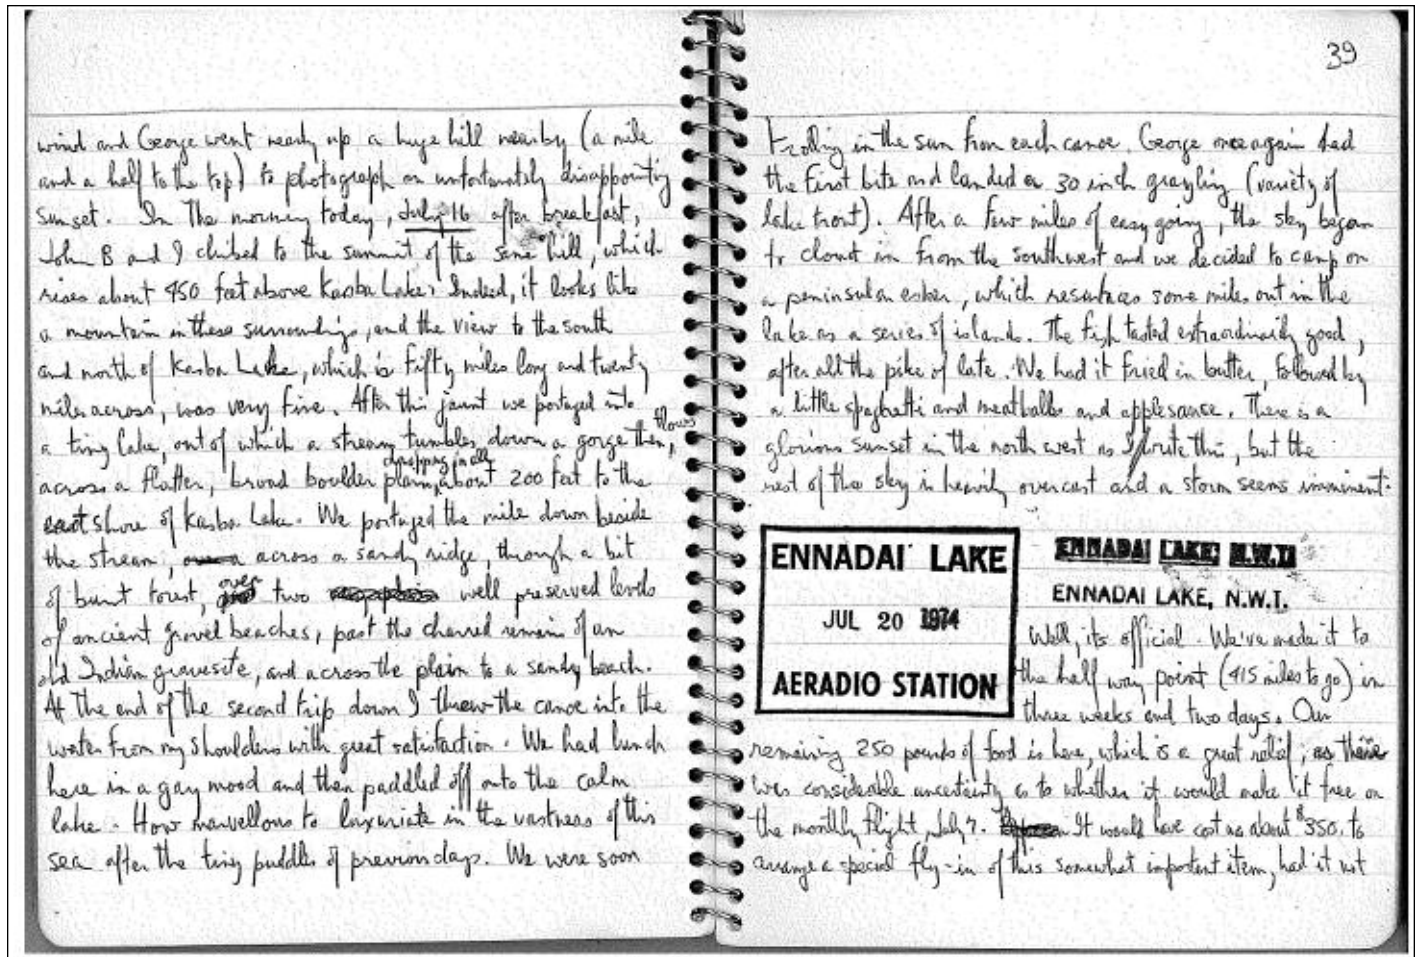 wind and George went nearly up a huge hill nearby (a mile
and a half to the top) to photograph an unfortunately disappointing
sunset. In the morning today, July 16 after breakfast,
John B and I climbed to the summit of the same hill, which
rises about 450 feet above Kasba Lake. Indeed, it looks like
a mountain in these surroundings, and the view to the south
and north of Kasba Lake, which is fifty miles long and twenty
miles across, was very fine. After this jaunt we portaged into
a tiny lake, out of which a stream tumbles down a gorge then flows
across a flatter, broad boulder plain, dropping in all about 200 feet to the
east shore of Kasba Lake. We portaged the mile down beside
the stream, across a sandy ridge, through a bit
of burnt forest, over two well preserved levels
of ancient gravel beaches, past the charred remain of an
old Indian gravesite, and across the plain to a sandy beach.
At the end of the second trip down I threw the canoe into the
water from my shoulders with great satisfaction. We had lunch
here in a gay mood and then paddled off onto the calm
lake. How marvellous to luxuriate in the vastness of this
sea after the tiny puddles of previous days. We were soon
39
trolling in the sun from each canoe. George once again had
the first bite and landed a 30 inch grayling (variety of
lake trout). After a few miles of easy going, the sky began
to cloud in from the southwest and we decided to camp on
a peninsular esker, which resurfaces some miles out in the
lake as a series of islands. The fish tasted extraordinarily good,
after all the pike of late. We had it fried in butter, followed by
a little spaghetti and meatballs and applesauce. There is a
glorious sunset in the north west as I write this, but the
rest of the sky is heavily overcast and a storm seems imminent.
ENNADAI LAKE
JUL 20 1974
AERADIO STATION
ENNADAI LAKE, N.W.T.
ENNADAI LAKE, N.W.T.
Well, its official. We've made it to
the half way point (415 miles to go) in
three weeks and two days. Our
remaining 250 pounds of food is here, which is a great relief, as there
was considerable uncertainty as to whether it would make it free on
the monthly flight, July 7. It would have cost us about $350. to
arrange a special fly-in of this somewhat important item, had it not